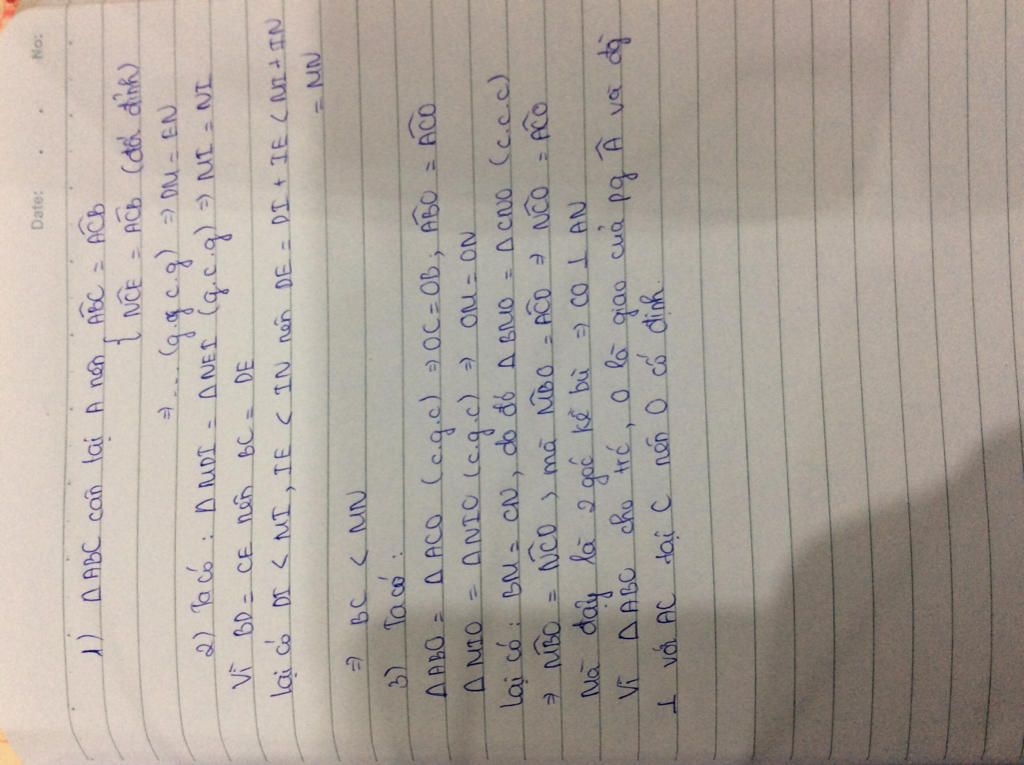 No:
Date:
1) ΔABC cân tại A nên { \widehat{ABC} = \widehat{ACB}
\widehat{NCE} = \widehat{ACB} (đối đỉnh)
⇒ .... (g.c.g) ⇒ DM = EN
2) Ta có : ΔMDI = ΔNEI (g.c.g) ⇒ MI = NI
Vì BD = CE nên BC = DE
Lại có DI < MI, IE < IN nên DE = DI + IE < MI + IN
= MN
⇒ BC < MN
3) Ta có :
ΔABO = ΔACO (c.g.c) ⇒ OC = OB ; \widehat{ABO} = \widehat{ACO}
ΔMIO = ΔNIO (c.g.c) ⇒ OM = ON
Lại có : BM = CN, do đó ΔBMO = ΔCNO (c.c.c)
⇒ \widehat{MBO} = \widehat{NCO}, mà \widehat{MBO} = \widehat{ACO} ⇒ \widehat{NCO} = \widehat{ACO}
Mà đây là 2 góc kề bù ⇒ CO ⊥ AN
Vì ΔABC cho trc, O là giao của pg \widehat{A} và đg
⊥ với AC tại C nên O cố định